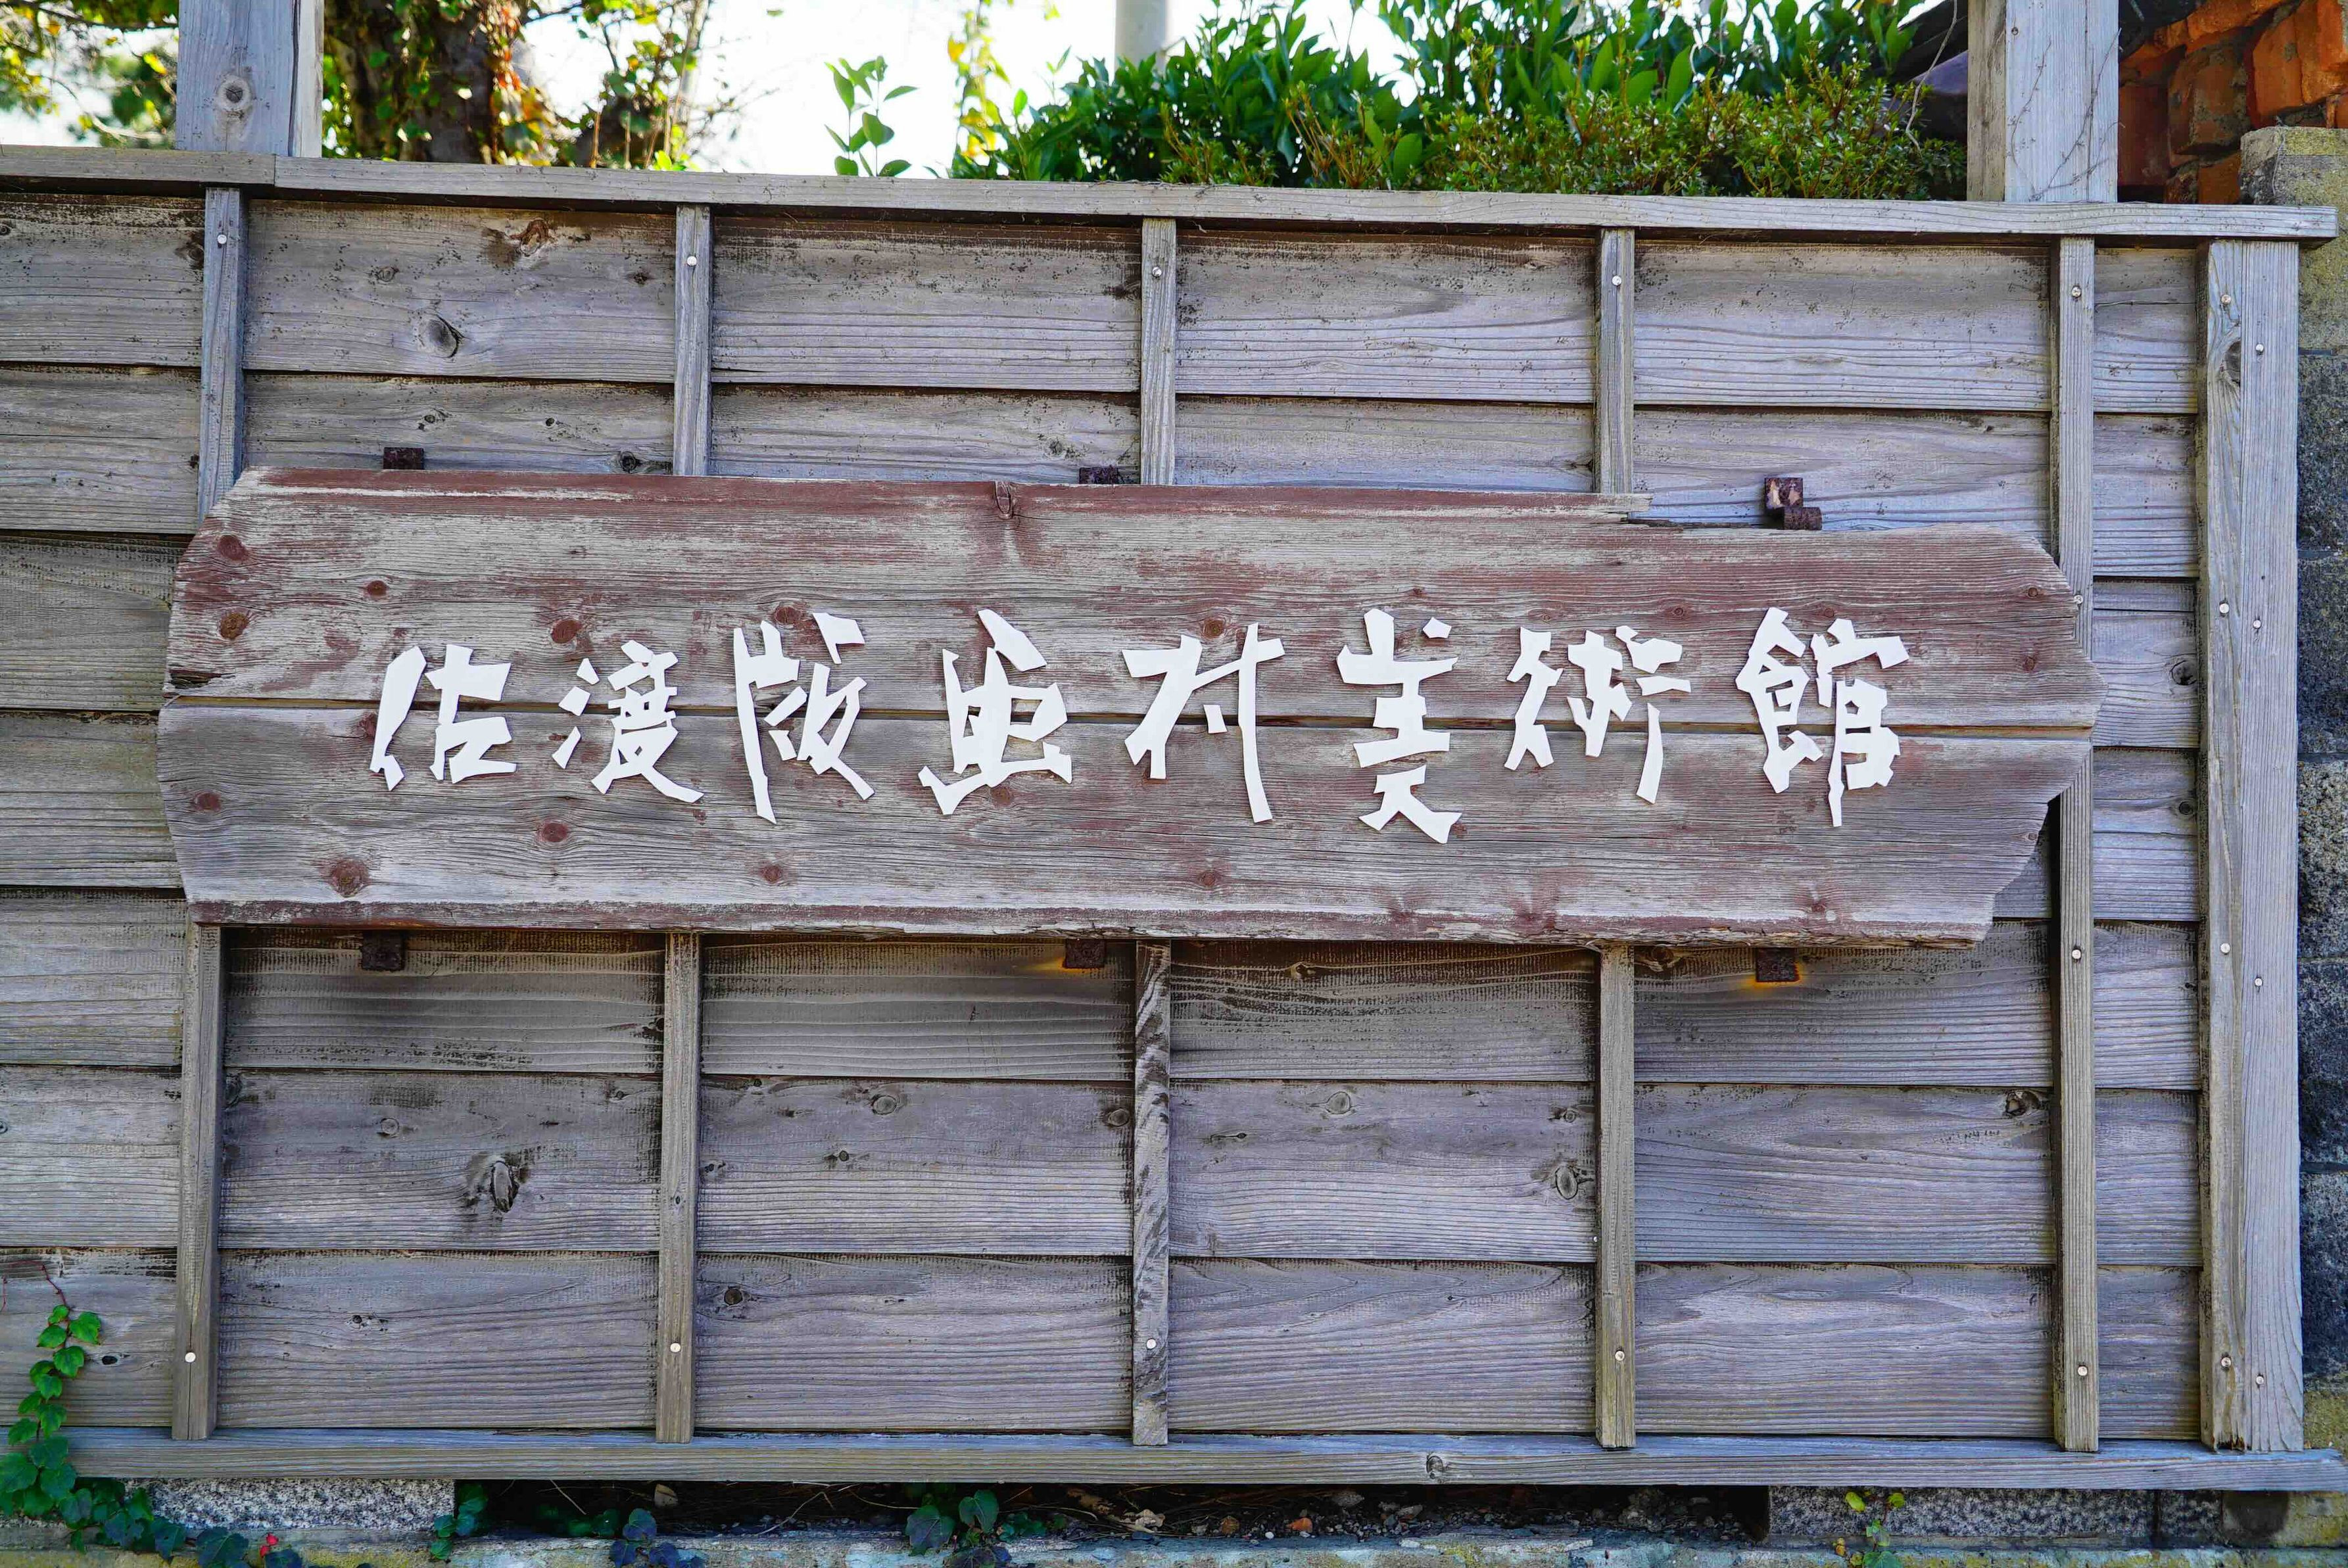 佐渡版画村美術館